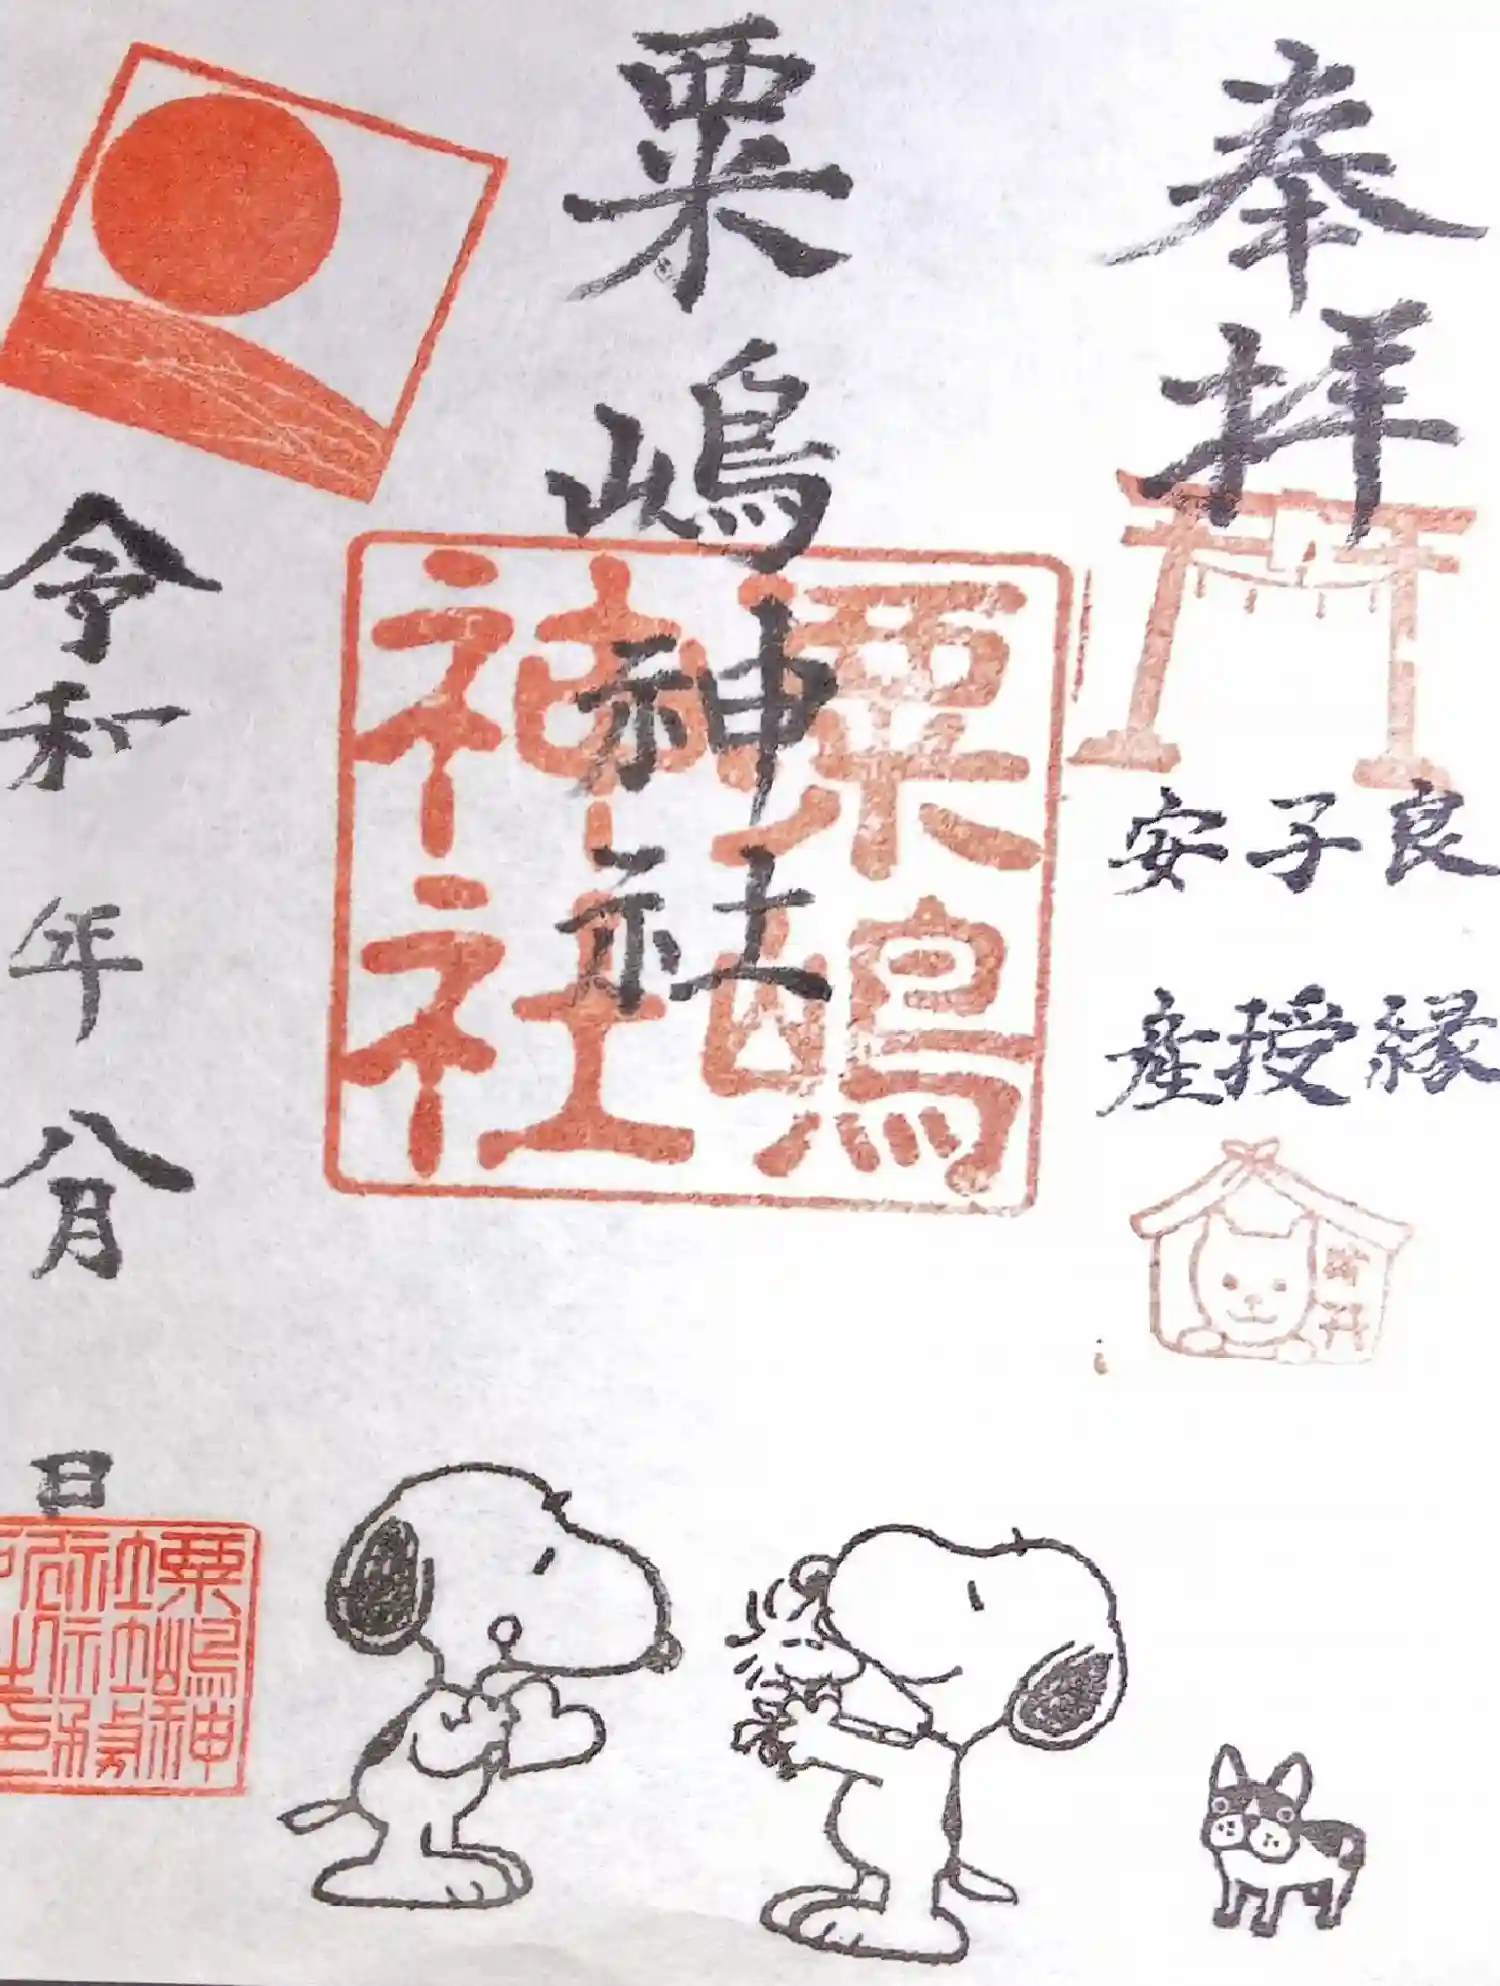 奉拝
良縁
子授
安産
粟嶋神社
粟嶋
神社
令和 年 八月 日
粟嶋神